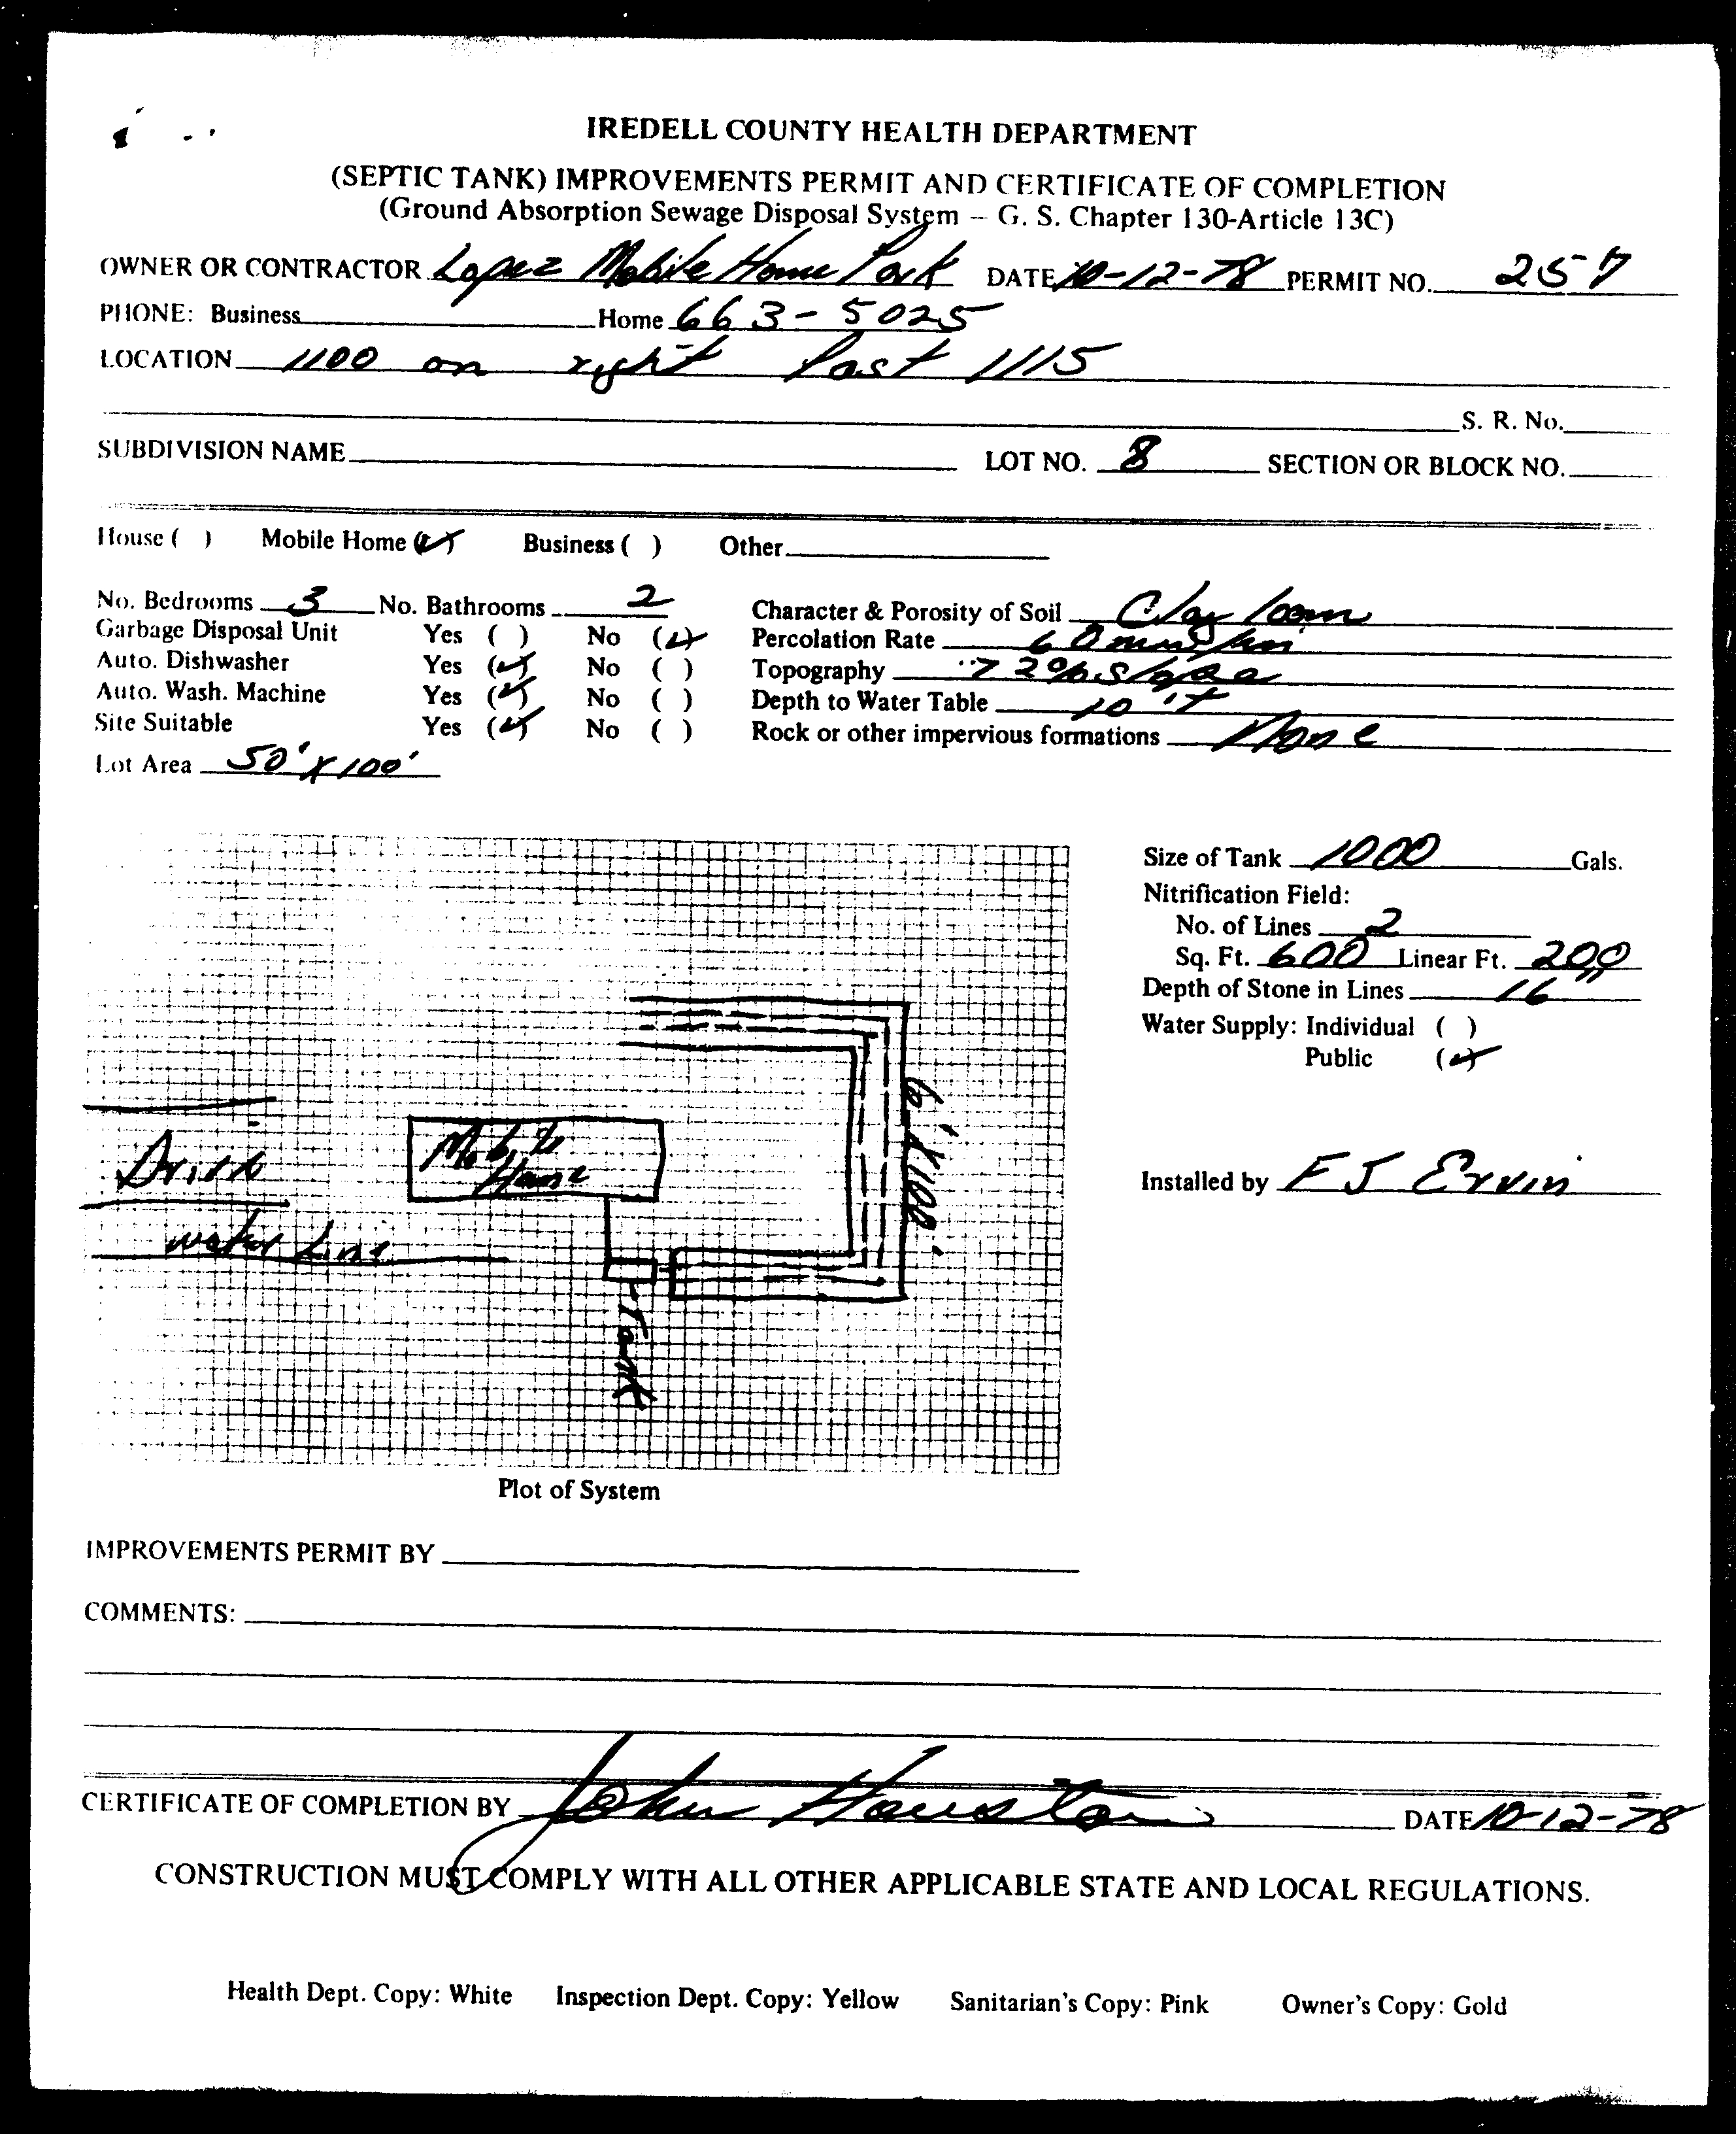 IREDELL COUNTY HEALTH DEPARTMENT
(SEPTIC TANK) IMPROVEMENTS PERMIT AND CERTIFICATE OF COMPLETION
(Ground Absorption Sewage Disposal System – G. S. Chapter 130-Article 13C)
OWNER OR CONTRACTOR Lopez Mobile Home Park DATE 10-12-78 PERMIT NO. 257
PHONE: Business Home 663-5025
LOCATION 1100 on right Past 1115
S. R. No.
SUBDIVISION NAME LOT NO. 8 SECTION OR BLOCK NO.
House ( ) Mobile Home (✓) Business ( ) Other
No. Bedrooms 3 No. Bathrooms 2 Character & Porosity of Soil Clay loam
Garbage Disposal Unit Yes ( ) No (✓) Percolation Rate 60 min/in
Auto. Dishwasher Yes (✓) No ( ) Topography 72% Slope
Auto. Wash. Machine Yes (✓) No ( ) Depth to Water Table 10 ft
Site Suitable Yes (✓) No ( ) Rock or other impervious formations None
Lot Area 50' X 100'
Size of Tank 1000 Gals.
Nitrification Field:
No. of Lines 2
Sq. Ft. 600 Linear Ft. 200
Depth of Stone in Lines 16"
Water Supply: Individual ( )
Public (✓)
Mobile
Home
Drive
water Line
Tank
Installed by F J Ervin
Plot of System
IMPROVEMENTS PERMIT BY
COMMENTS:
CERTIFICATE OF COMPLETION BY John Houston DATE 10-12-78
CONSTRUCTION MUST COMPLY WITH ALL OTHER APPLICABLE STATE AND LOCAL REGULATIONS.
Health Dept. Copy: White Inspection Dept. Copy: Yellow Sanitarian's Copy: Pink Owner's Copy: Gold